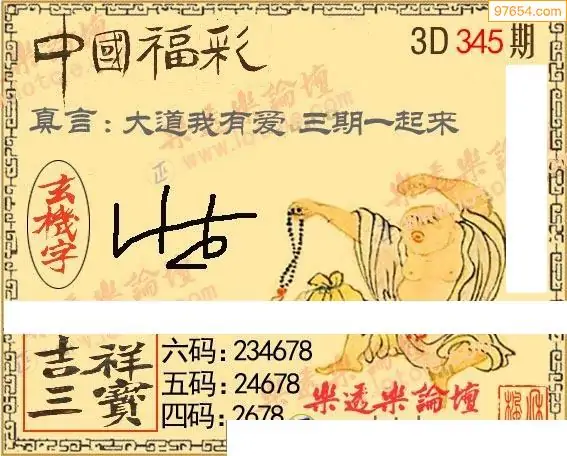 97654.com
中國福彩
3D 345期
真言：大道我有爱 三期一起来
玄機字
吉祥三寶
六码：234678
五码：24678
四码：2678
樂透樂論壇